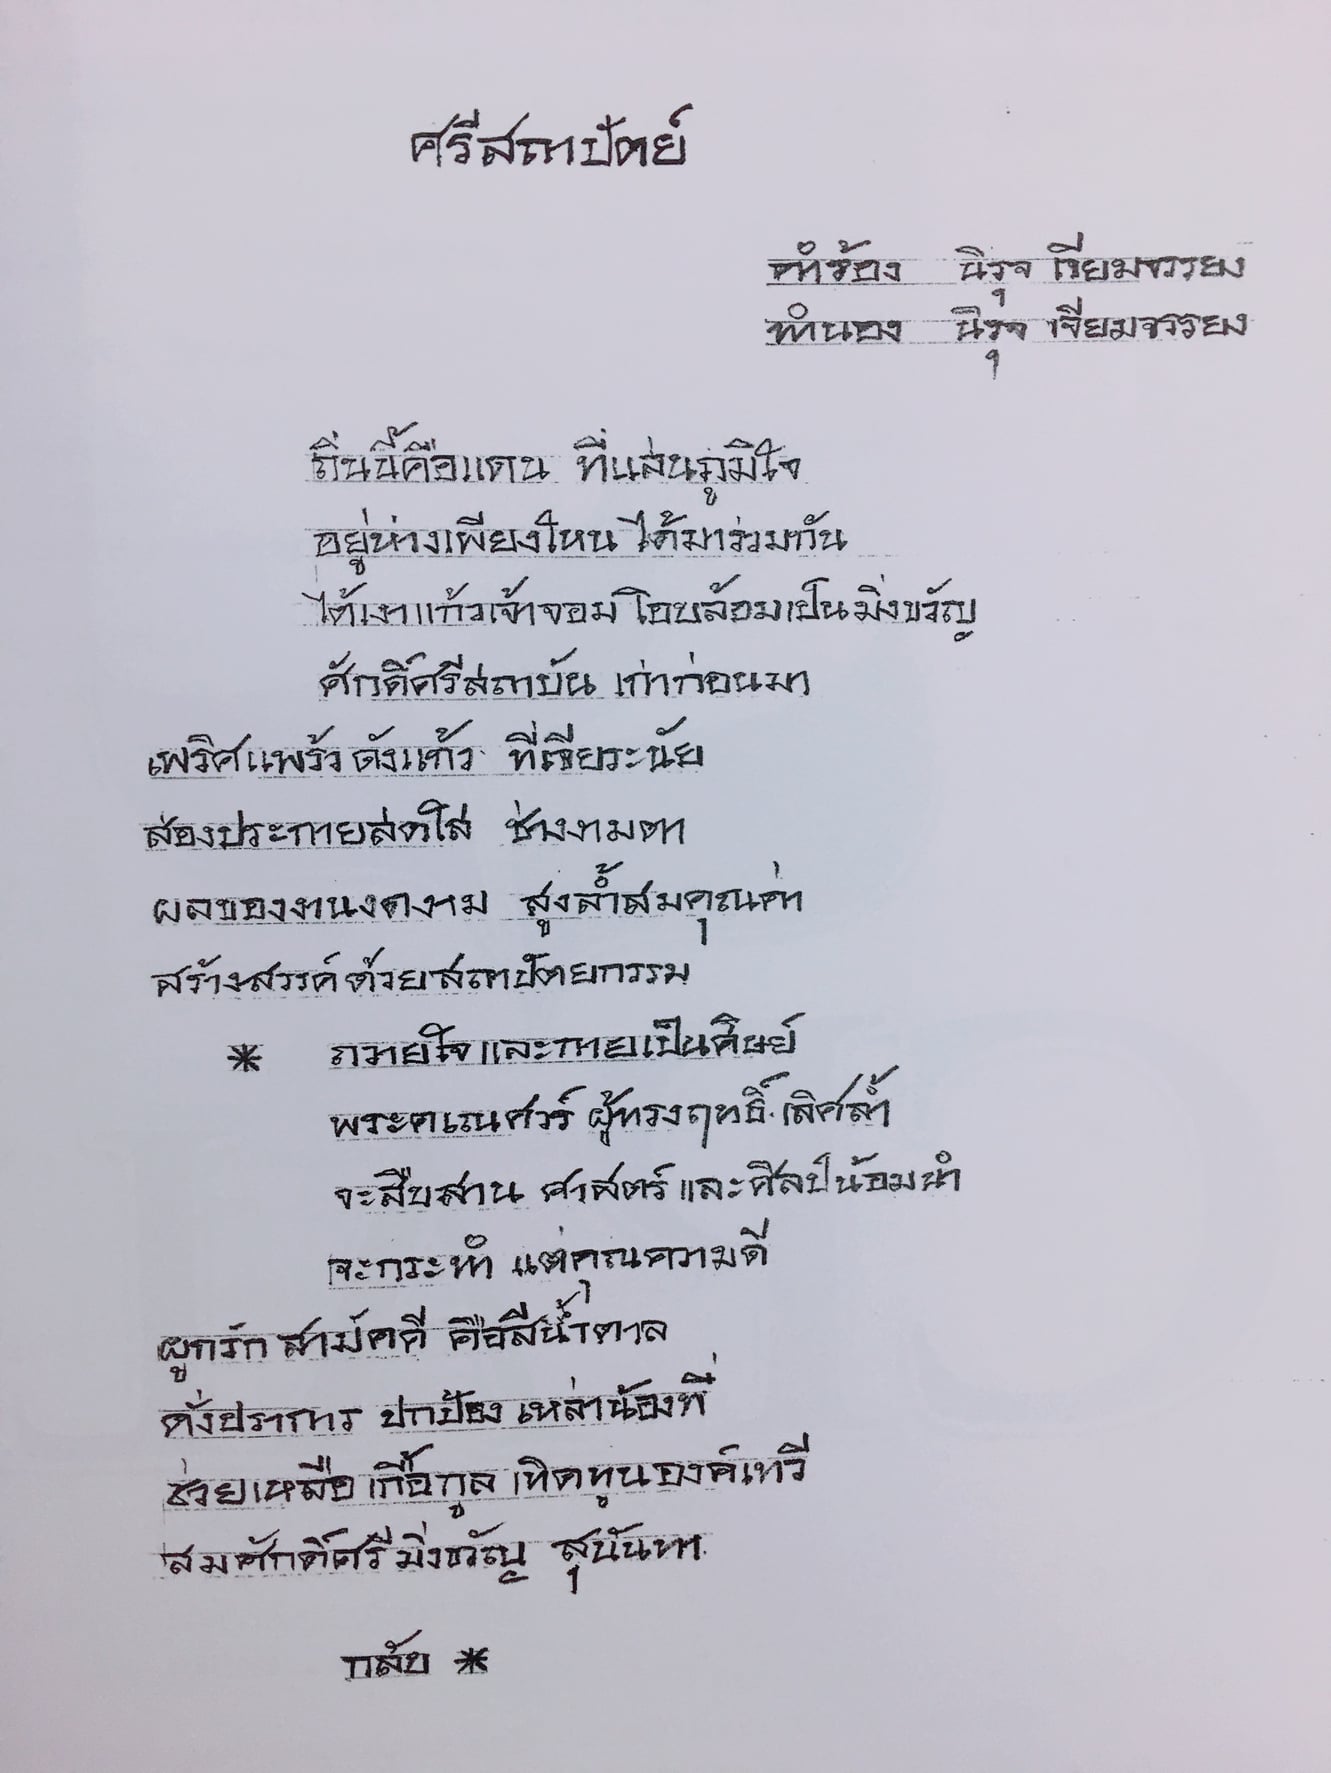 ศรีสถาปัตย์
คำร้อง นิรุจ เจียมจรรยง
ทำนอง นิรุจ เจียมจรรยง
ถิ่นนี้คือแดน ที่แสนภูมิใจ
อยู่ห่างเพียงไหน ได้มาร่วมกัน
ได้เงาแก้วเจ้าจอม โอบล้อมเป็นมิ่งขวัญ
ศักดิ์ศรีสถาบัน เก่าก่อนมา
เพริศแพร้วดังแก้ว ที่เจียระนัย
ส่องประกายสดใส ช่างงามตา
ผลของงานงดงาม สูงล้ำสมคุณค่า
สร้างสรรค์ด้วยสถาปัตยกรรม
* ถวายใจและกายเป็นศิษย์
พระคเณศวร์ ผู้ทรงฤทธิ์เลิศล้ำ
จะสืบสาน ศาสตร์และศิลป์น้อมนำ
จะกระทำ แต่คุณความดี
ผูกรัก สามัคคี คือสีน้ำตาล
ดั่งปราการ ปกป้อง เหล่าน้องพี่
ช่วยเหลือ เกื้อกูล เทิดทูนองค์เทวี
สมศักดิ์ศรีมิ่งขวัญ สุนันทา
กลับ *